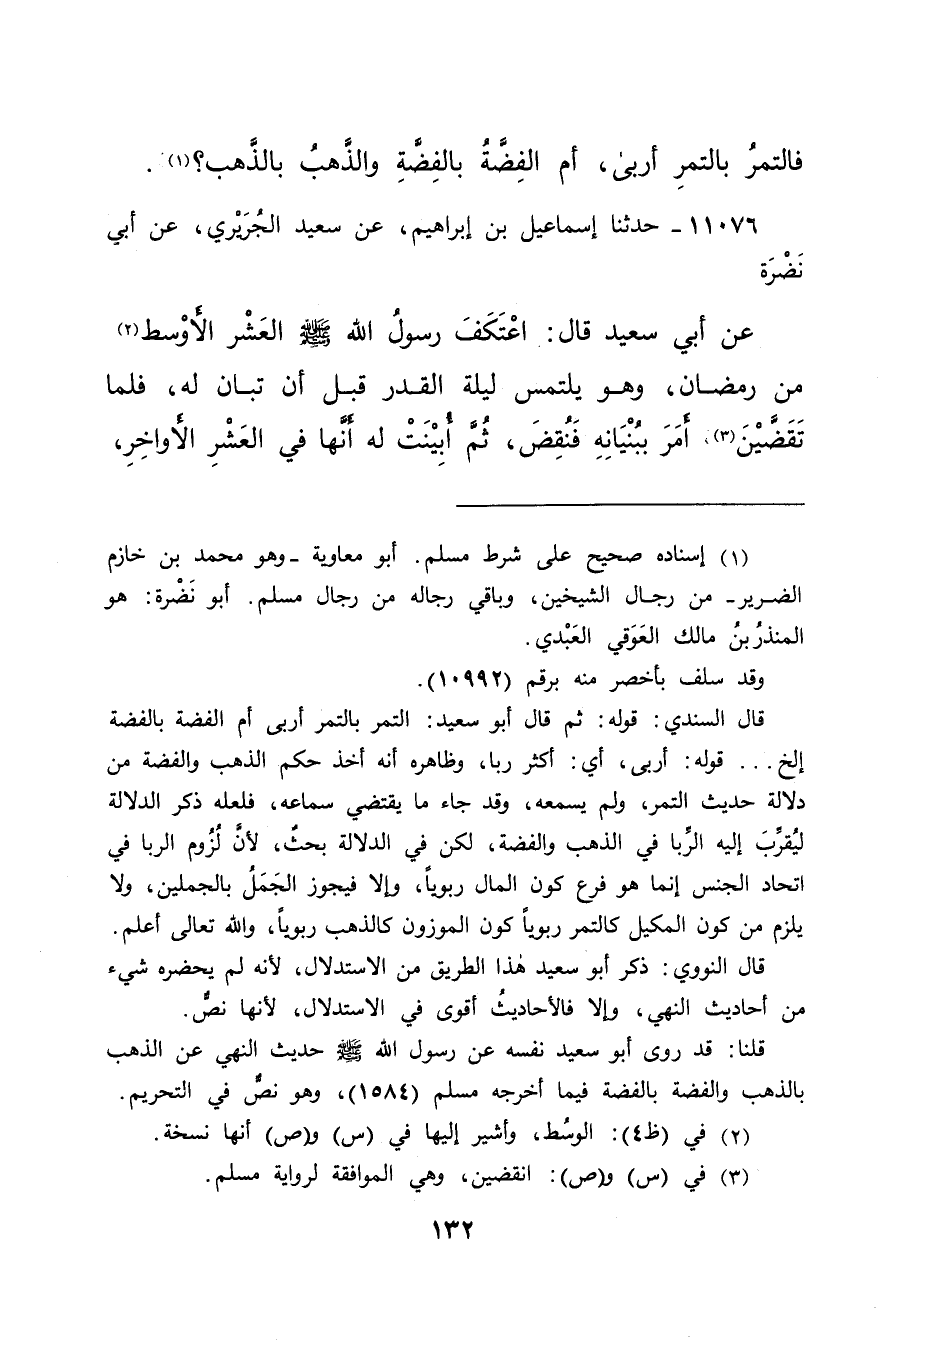 فالتمرُ بالتمرِ أربىٰ، أم الفِضَّةُ بالفِضَّةِ والذَّهبُ بالذَّهب؟(١).
١١٠٧٦ ـ حدثنا إسماعيل بن إبراهيم، عن سعيد الجُرَيْري، عن أبي
نَضْرَة
عن أبي سعيد قال: اعْتَكَفَ رسولُ الله ﷺ العَشْر الأَوْسط(٢)
من رمضان، وهو يلتمس ليلة القدر قبل أن تبان له، فلما
تَقَضَّيْنَ(٣) أَمَرَ بِبُنْيَانِهِ فَنُقِضَ، ثُمَّ أُبِيْنَتْ له أنَّها في العَشْرِ الأَواخِرِ،
(١) إسناده صحيح على شرط مسلم. أبو معاوية ـ وهو محمد بن خازم
الضرير ـ من رجال الشيخين، وباقي رجاله من رجال مسلم. أبو نَضْرة: هو
المنذرُ بنُ مالك العَوَقي العَبْدي.
وقد سلف بأخصر منه برقم (١٠٩٩٢).
قال السندي: قوله: ثم قال أبو سعيد: التمر بالتمر أربى أم الفضة بالفضة
إلخ... قوله: أربى، أي: أكثر ربا، وظاهره أنه أخذ حكم الذهب والفضة من
دلالة حديث التمر، ولم يسمعه، وقد جاء ما يقتضي سماعه، فلعله ذكر الدلالة
ليُقرِّبَ إليه الرِّبا في الذهب والفضة، لكن في الدلالة بحثٌ، لأنَّ لُزُوم الربا في
اتحاد الجنس إنما هو فرع كون المال ربوياً، وإلا فيجوز الجَمَلُ بالجملين، ولا
يلزم من كون المكيل كالتمر ربوياً كون الموزون كالذهب ربوياً، والله تعالى أعلم.
قال النووي: ذكر أبو سعيد هٰذا الطريق من الاستدلال، لأنه لم يحضره شيء
من أحاديث النهي، وإلا فالأحاديثُ أقوى في الاستدلال، لأنها نصٌّ.
قلنا: قد روى أبو سعيد نفسه عن رسول الله ﷺ حديث النهي عن الذهب
بالذهب والفضة بالفضة فيما أخرجه مسلم (١٥٨٤)، وهو نصٌّ في التحريم.
(٢) في (ظ٤): الوسُط، وأشير إليها في (س) و(ص) أنها نسخة.
(٣) في (س) و(ص): انقضين، وهي الموافقة لرواية مسلم.
١٣٢